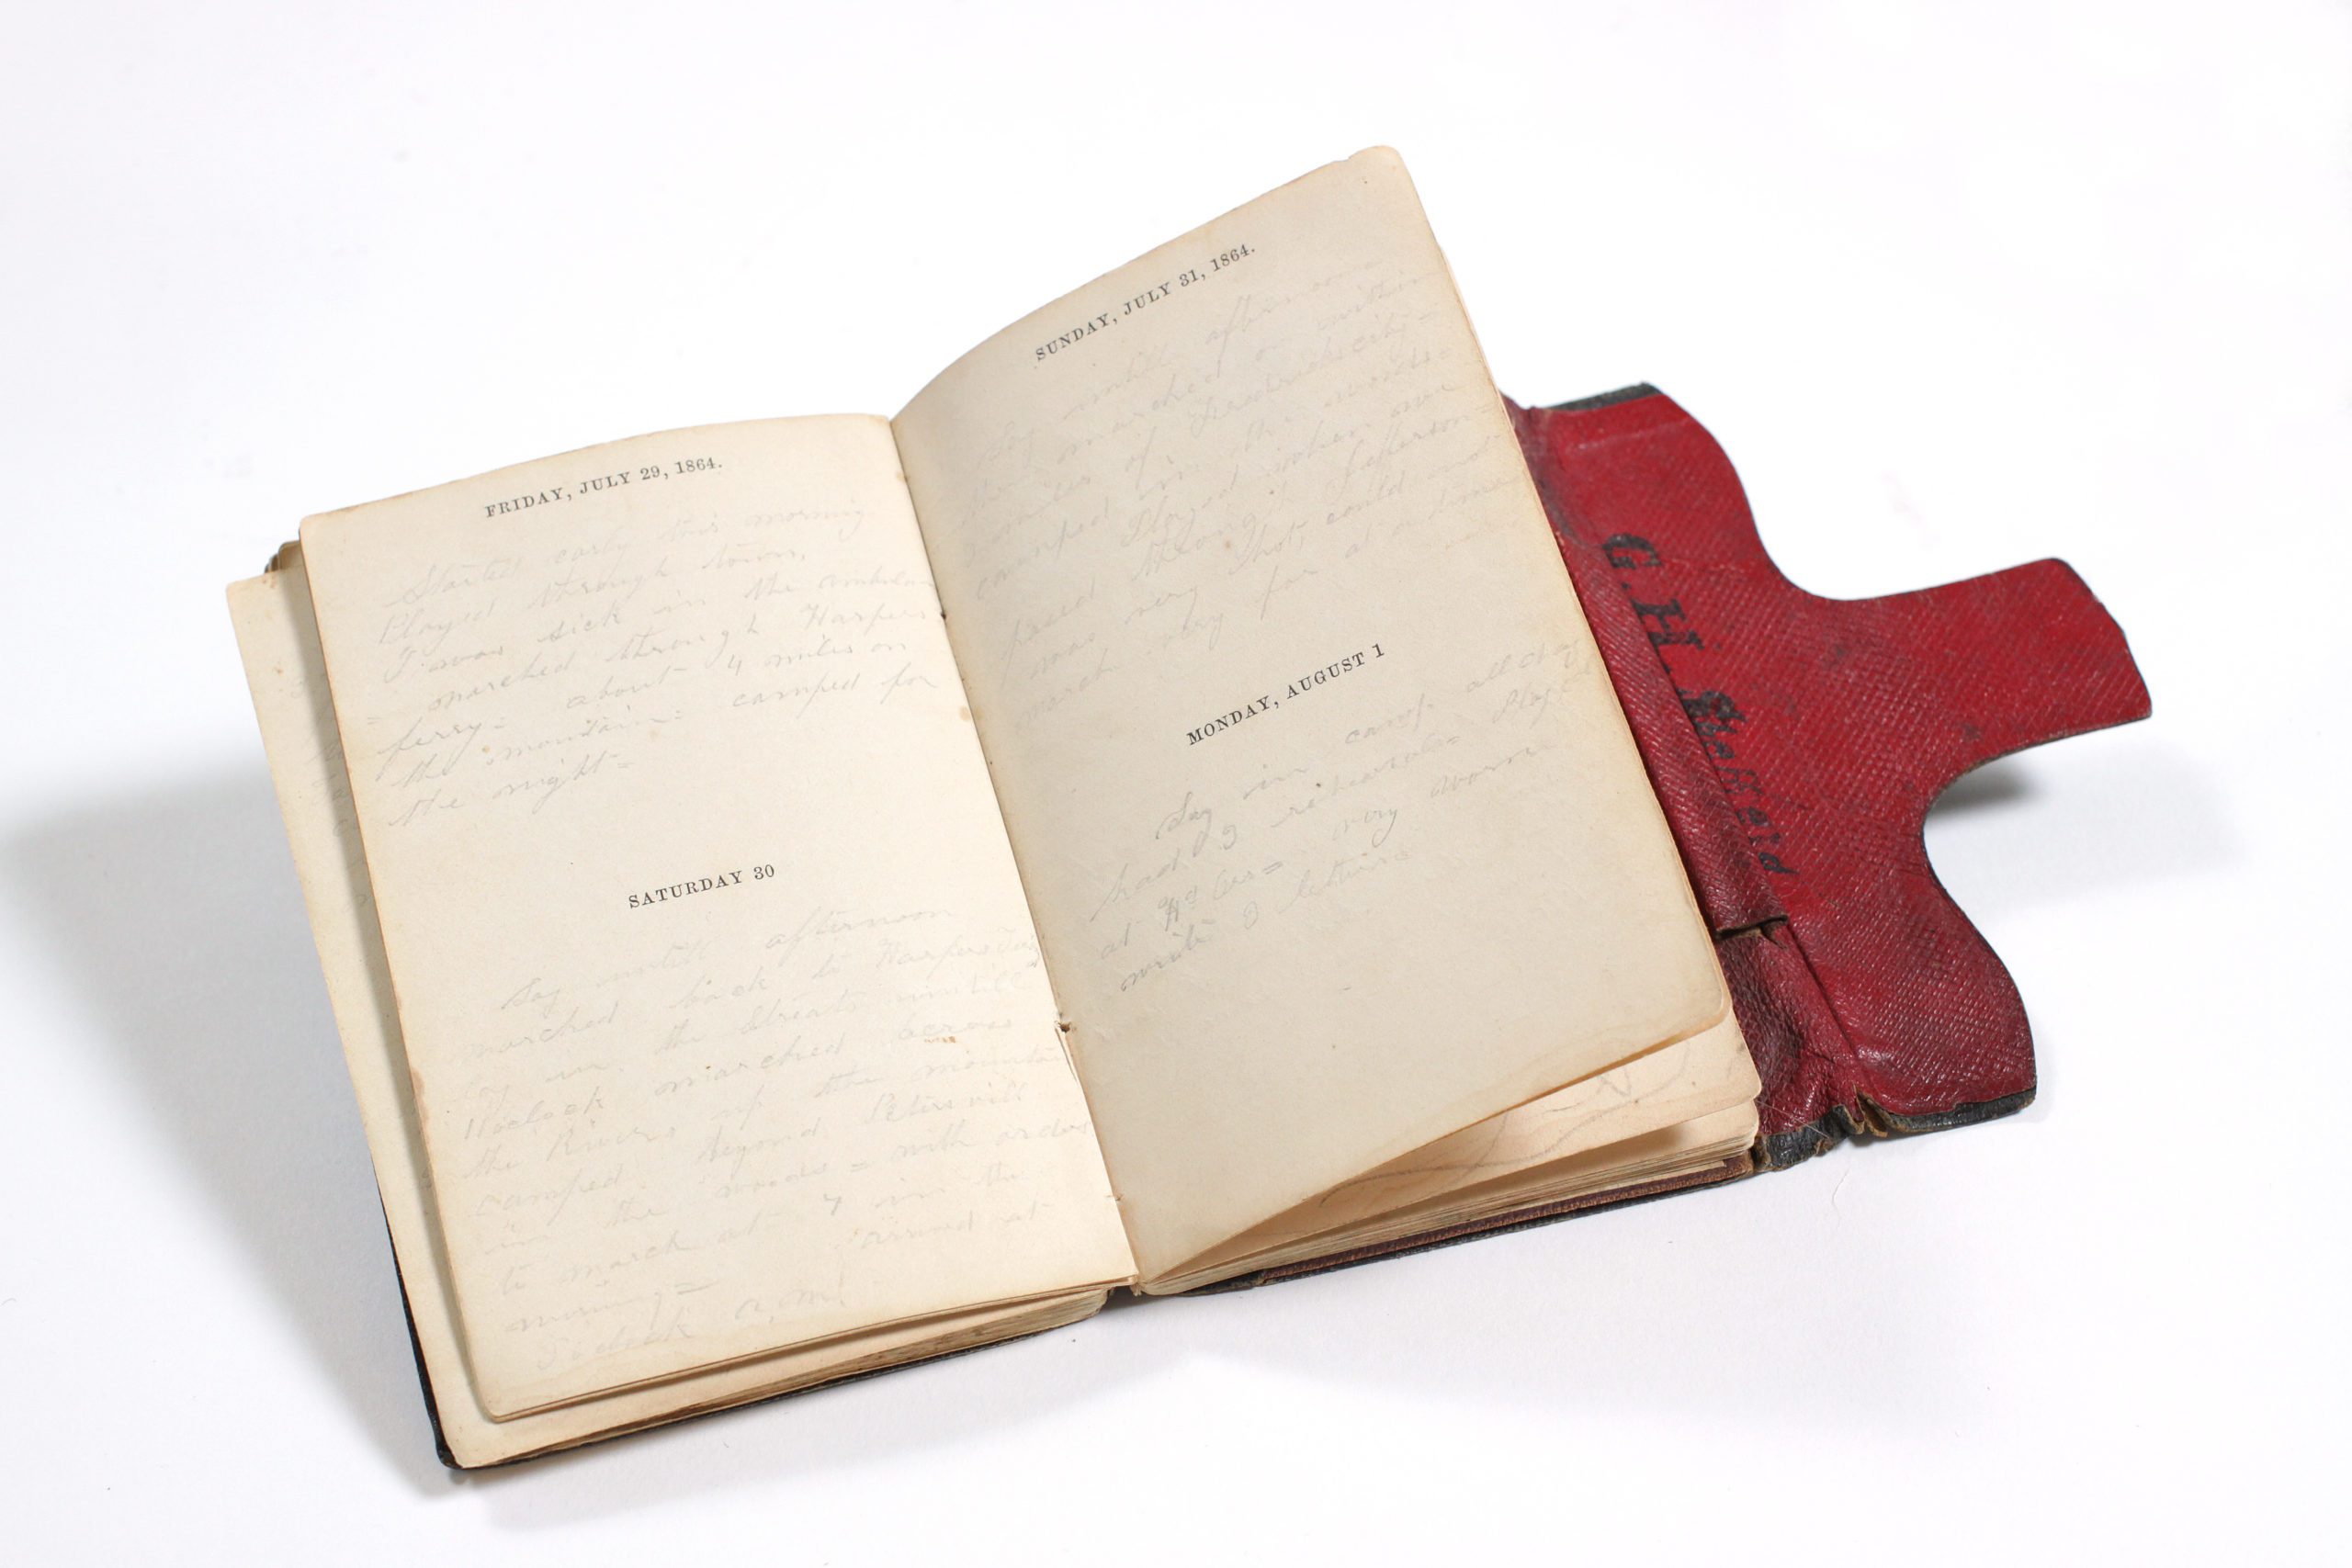 FRIDAY, JULY 29, 1864.
Started early this morning
Played through town,
I was sick in the ambulan
= marched through Harpers
ferry = about 4 miles on
the mountain = camped for
the night =
SATURDAY 30
Lay untill afternoon
marched back to Harpers
lay in the Streats untill
11 oclock marched across
the Rivers up the mountain
camped beyond Petersvill
in the woods = with orders
to march at 4 in the
morning = arrived at
oclock a,m
SUNDAY, JULY 31, 1864.
Lay untill afternoon
marched to within
miles of Frederick city =
camped in the woods =
Played when we
passed through Jefferson =
was very hot, could not
march very far at a time
MONDAY, AUGUST 1
Lay in camp all day
had 2 rehearsals = Play
at Hd Qrs = very warm
write 2 letters
G. H. Sheffeild